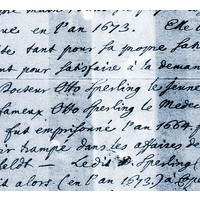 en l'an 1673. Elle
te tant pour sa propre Sati
ant pour Satisfaire à la deman
Docteur Otto Sperling le Jeune
fameux Otto Sperling le Medec
fut emprisonné l'an 1664.
oir trampé dans les affaires de
feldt — Ledit D. Sperling
it alors (en l'an 1673.) à Cop